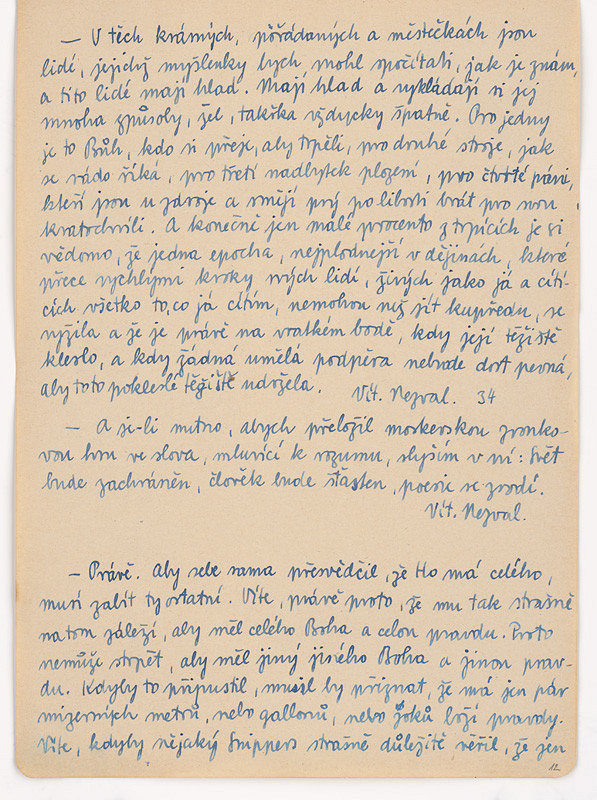 — V těch krásných, pořádaných a městečkách jsou
lidé, jejichž myšlenky bych mohl spočítati, jak je znám,
a tito lidé mají hlad. Mají hlad a vykládají si jej
mnoha způsoby, žel, takřka vždycky špatně. Pro jedny
je to Bůh, kdo si přeje, aby trpěli, pro druhé stroje, jak
se rádo říká, pro třetí nadbytek plození, pro čtvrté páni,
kteří jsou u zdroje a smějí prý po libosti brát pro svou
kratochvíli. A konečně jen malé procento z trpících je si
vědomo, že jedna epocha, nejplodnější v dějinách, které
přece rychlými kroky svých lidí, živých jako já a cítí-
cích všetko to, co já cítím, nemohou než jít kupředu, se
vyžila a že je právě na vratkém bodě, kdy její těžiště
kleslo, a kdy žádná umělá podpěra nebude dost pevná,
aby toto pokleslé těžiště udržela. Vít. Nezval. 34
— A je-li nutno, abych přeložil moskerskou zvonko-
vou hru ve slova, mluvící k rozumu, slyším v ní: Svět
bude zachráněn, člověk bude šťasten, poesie se zrodí.
Vít. Nezval.
— Právě. Aby sebe sama přesvědčil, že Ho má celého,
musí zabít ty ostatní. Víte, právě proto, že mu tak strašně
na tom záleží, aby měl celého Boha a celou pravdu. Proto
nemůže strpět, aby měl jiný jiného Boha a jinou prav-
du. Kdyby to připustil, musil by přiznat, že má jen pár
mizerných metrů, nebo gallonů, nebo žoků boží pravdy.
Víte, kdyby nějaký Snippers strašně důležitě věřil, že jen
12